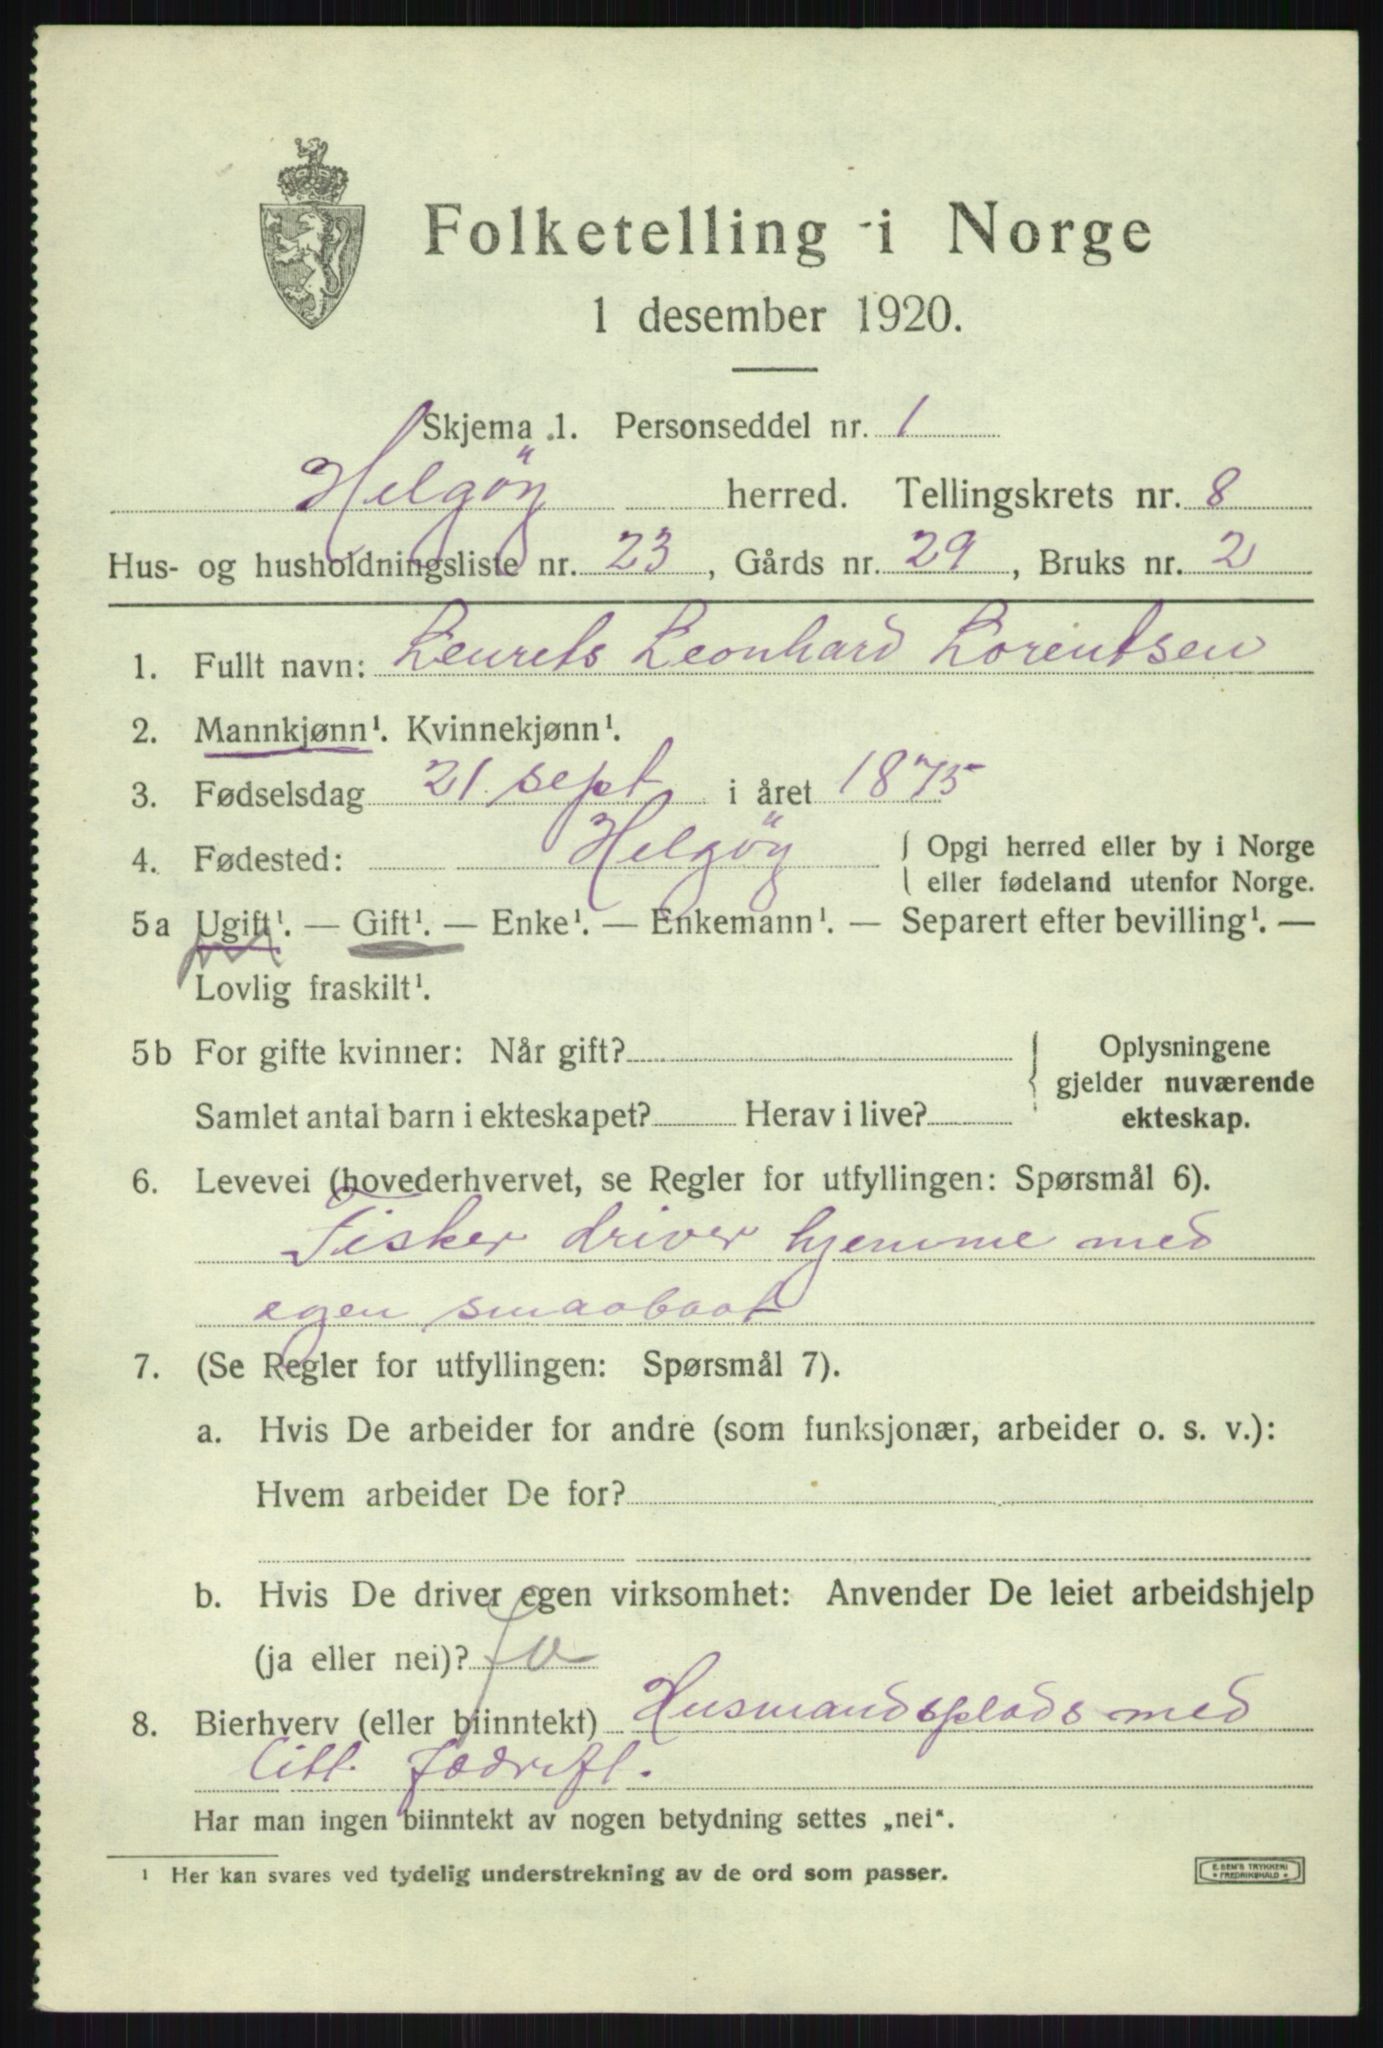 Folketelling i Norge
1 desember 1920.
Skjema 1. Personseddel nr. 1
Helgöy herred. Tellingskrets nr. 8
Hus- og husholdningsliste nr. 23, Gårds nr. 29, Bruks nr. 2
1. Fullt navn: Leurets Leonhard Lorentsen
2. Mannkjønn¹. Kvinnekjønn¹.
3. Fødselsdag 21 sept i året 1875
4. Fødested: Helgöy { Opgi herred eller by i Norge
eller fødeland utenfor Norge.
5a Ugift¹. — Gift¹. — Enke¹. — Enkemann¹. — Separert efter bevilling¹. —
Lovlig fraskilt¹.
5b For gifte kvinner: Når gift? { Oplysningene
gjelder nuværende
Samlet antal barn i ekteskapet? Herav i live? ekteskap.
6. Levevei (hovederhvervet, se Regler for utfyllingen: Spørsmål 6).
Fisker driver hjemme med
egen smaabaat
7. (Se Regler for utfyllingen: Spørsmål 7).
a. Hvis De arbeider for andre (som funksjonær, arbeider o. s. v.):
Hvem arbeider De for?
b. Hvis De driver egen virksomhet: Anvender De leiet arbeidshjelp
(ja eller nei)?
8. Bierhverv (eller biinntekt) Husmandsplads med
litt jodrift.
Har man ingen biinntekt av nogen betydning settes „nei“.
¹ Her kan svares ved tydelig understrekning av de ord som passer.
E. SEM'S TRYKKERI
* FREDRIKSHALD *